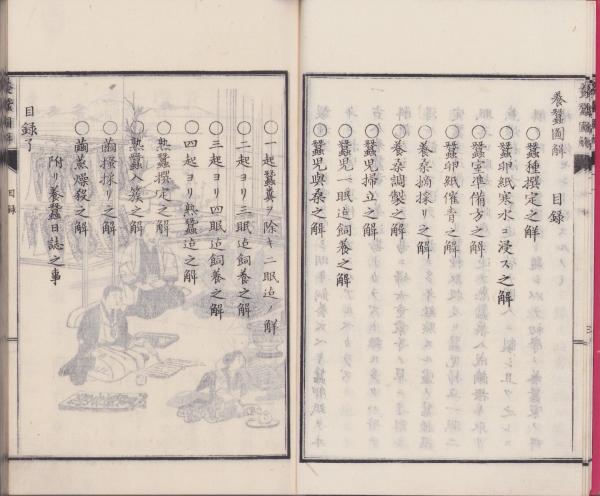 養蠶圖解
目録
〇蠶種撰定之解
〇蠶卵紙寒水ニ浸ス之解
〇蠶室準備方之解
〇蠶卵紙催青之解
〇養桑摘採リ之解
〇養桑調製之解
〇蠶児掃立之解
〇蠶児一眠迠飼養之解
〇蠶児與桑之解
〇一起蠶糞ヲ除キ二眠迠ノ解
〇二起ヨリ三眠迠飼養之解
〇三起ヨリ四眠迠飼養之解
〇四起ヨリ熟蠶迠之解
〇熟蠶撰定之解
〇熟蠶入簇之解
〇繭搔採リ之解
〇繭蒸燥殺之解
附リ養蠶日誌之事
目録了
目録